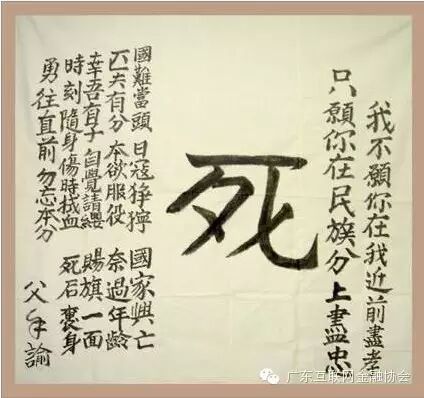 我不願你在我近前盡孝
只願你在民族分上盡忠
死
國難當頭 日寇猙獰 國家興亡
匹夫有分 本欲服役 奈過年齡
幸吾有子 自覺請纓 賜旗一面
時刻隨身 傷時拭血 死后裹身
勇往直前 勿忘本分
父手諭
广东互联网金融协会